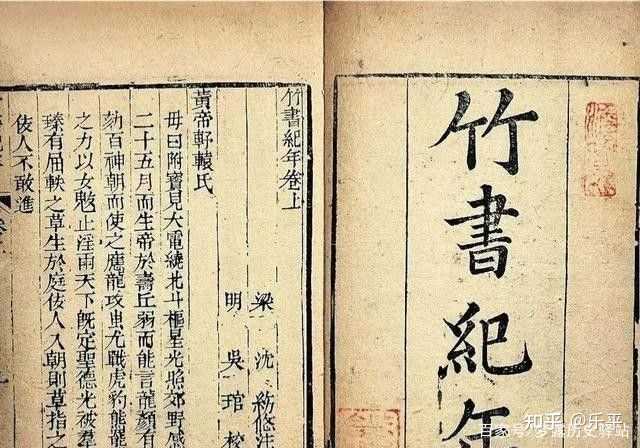 竹書紀年
竹書紀年卷上
梁 沈約修注
明 吳琯校
黃帝軒轅氏
母曰附寶見大電繞北斗樞星光照郊野感
二十五月而生帝於壽丘弱而能言龍顏有
劾百神朝而使之應龍攻蚩尤戰虎豹熊羆
之力以女魃止淫雨天下既定聖德光被羣
臻有屈軼之草生於庭佞人入朝則草指之
佞人不敢進
知乎 @乐平